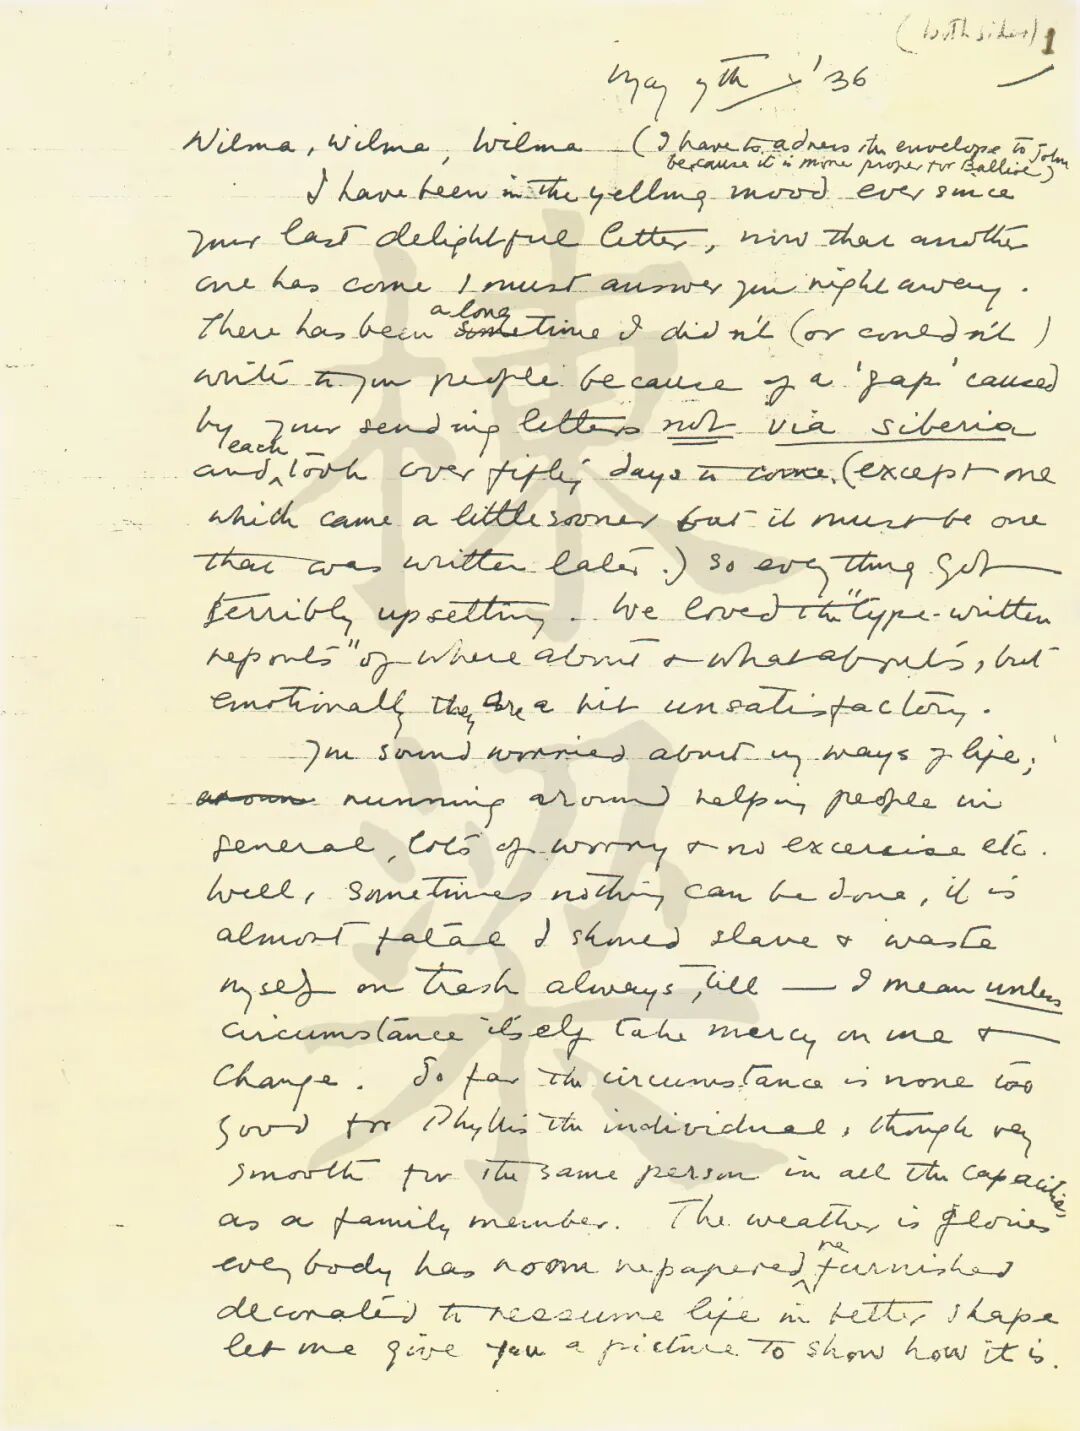 (both sides) 1
May 7th '36
Wilma, Wilma, Wilma (I have to adress the envelope to John
because it is more proper for Balliol)
I have been in the yelling mood ever since
your last delightful letter, now that another
one has come I must answer you right away.
There has been a long sometime I didn't (or couldn't)
write to you people because of a 'gap' caused
by your sending letters not via Siberia
and each took over fifty days to come. (except one
which came a little sooner but it must be one
that was written later.) So everything got
terribly upsetting. We loved the "type-written
reports" of where about & what abouts, but
emotionally they are a bit unsatisfactory.
You sound worried about my ways of life;
running around helping people in
general, lots of worry & no excercise etc.
Well, sometimes nothing can be done, it is
almost fatal I should slave & waste
myself on trash always, till — I mean unless
circumstance itself take mercy on me &
change. So far the circumstance is none too
good for Phyllis the individual, though very
smooth for the same person in all the capacities
as a family member. The weather is glories
everybody has room repapered, refurnished
decorated to ressume life in better shape
let me give you a picture to show how it is.